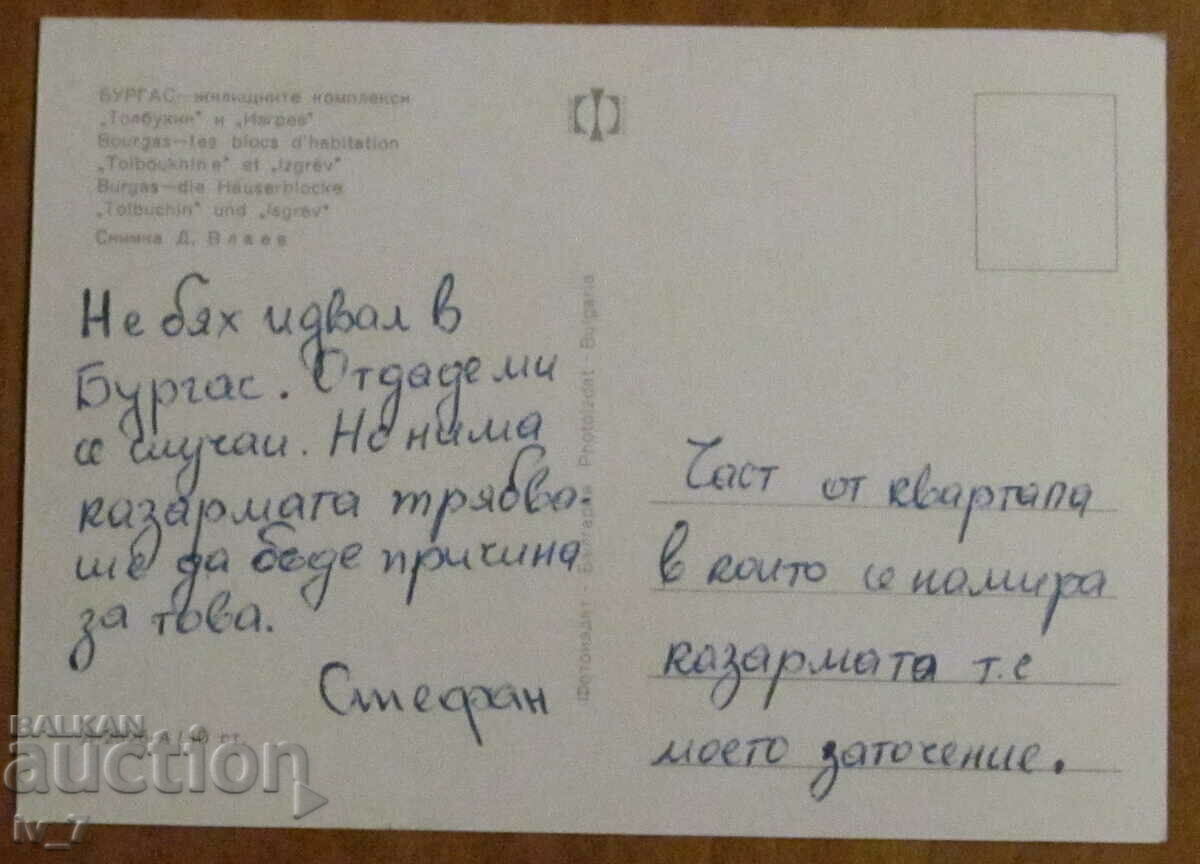 БУРГАС—жилищните комплекси
„Толбухин" и „Изгрев"
Bourgas—les blocs d'habitation
„Tolboukhine" et „Izgrév"
Burgas—die Häuserblocke
„Tolbuchin" und „Isgrév"
Снимка Д. Влаев
Не бях идвал в
Бургас. Отдаде ми
се случаи. Но нима
казармата трябва-
ше да бъде причина
за това.
Стефан
Фотоиздат - България Photoizdat - Bulgaria
Част от квартала
в които се намира
казармата т.е
моето заточение.
ст.
BALKAN
auction
iv_7